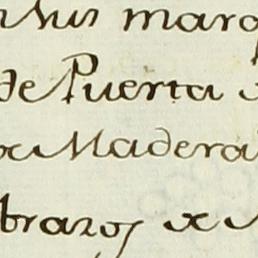 sus marq
de Puerta
de Madera
brazos de